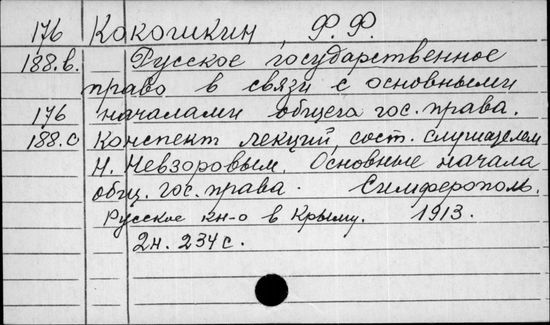 176 Кокошкин, Ф. Ф.
188.в. Русское государственное
право в связи с основными
176 началами общего гос. права.
188.с Конспект лекций, сост. слушателем
Н. Невзоровым. Основные начала
общ. гос. права. Симферополь.
Русское кн-о в Крыму. 1913.
2н. 234 с.